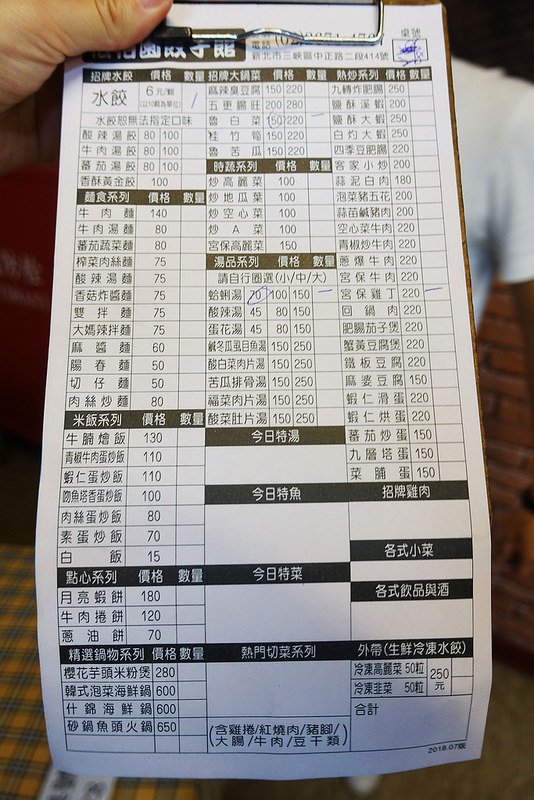 新北市三峽區中正路二段414號
桌號
招牌水餃 價格 數量
水餃 6元/顆
(以10顆為單位)
水餃恕無法指定口味
酸辣湯餃 80 100
牛肉湯餃 80 100
蕃茄湯餃 80 100
香酥黃金餃 100
麵食系列 價格 數量
牛肉麵 140
牛肉湯麵 80
蕃茄蔬菜麵 80
榨菜肉絲麵 75
酸辣湯麵 75
香菇炸醬麵 75
雙拌麵 75
大媽辣拌麵 75
麻醬麵 60
陽春麵 50
切仔麵 50
肉絲炒麵 80
米飯系列 價格 數量
牛腩燴飯 130
青椒牛肉蛋炒飯 110
蝦仁蛋炒飯 110
吻魚塔香蛋炒飯 100
肉絲蛋炒飯 80
素蛋炒飯 70
白飯 15
點心系列 價格 數量
月亮蝦餅 180
牛肉捲餅 120
蔥油餅 70
精選鍋物系列 價格 數量
櫻花芋頭米粉煲 280
韓式泡菜海鮮鍋 600
什錦海鮮鍋 600
砂鍋魚頭火鍋 650
招牌大鍋菜 價格 數量
麻辣臭豆腐 150 220
五更腸旺 200 280
魯白菜 150 220
桂竹筍 150 220
魯苦瓜 150 220
時蔬系列 價格 數量
炒高麗菜 100
炒地瓜葉 100
炒空心菜 100
炒A菜 100
宮保高麗菜 150
湯品系列 價格 數量
請自行圈選(小/中/大)
蛤蜊湯 70 100 150
酸辣湯 45 80 150
蛋花湯 45 80 150
鹹冬瓜虱目魚湯 150 250
酸白菜肉片湯 150 250
苦瓜排骨湯 150 250
福菜肉片湯 150 250
酸菜肚片湯 150 250
今日特湯
今日特魚
今日特菜
熱門切菜系列
(含雞捲/紅燒肉/豬腳/
大腸/牛肉/豆干類)
熱炒系列 價格 數量
九轉炸肥腸 250
鹽酥溪蝦 200
鹽酥大蝦 250
白灼大蝦 250
四季豆肥腸 220
客家小炒 200
蒜泥白肉 180
泡菜豬五花 200
蒜苗鹹豬肉 200
空心菜牛肉 220
青椒炒牛肉 220
蔥爆牛肉 220
宮保牛肉 220
宮保雞丁 220
回鍋肉 220
肥腸茄子煲 220
蟹黃豆腐煲 220
鐵板豆腐 220
麻婆豆腐 150
蝦仁滑蛋 220
蝦仁烘蛋 220
蕃茄炒蛋 150
九層塔蛋 150
菜脯蛋 150
招牌雞肉
各式小菜
各式飲品與酒
外帶(生鮮冷凍水餃)
冷凍高麗菜 50粒 250元
冷凍韭菜 50粒
合計
2018.07版